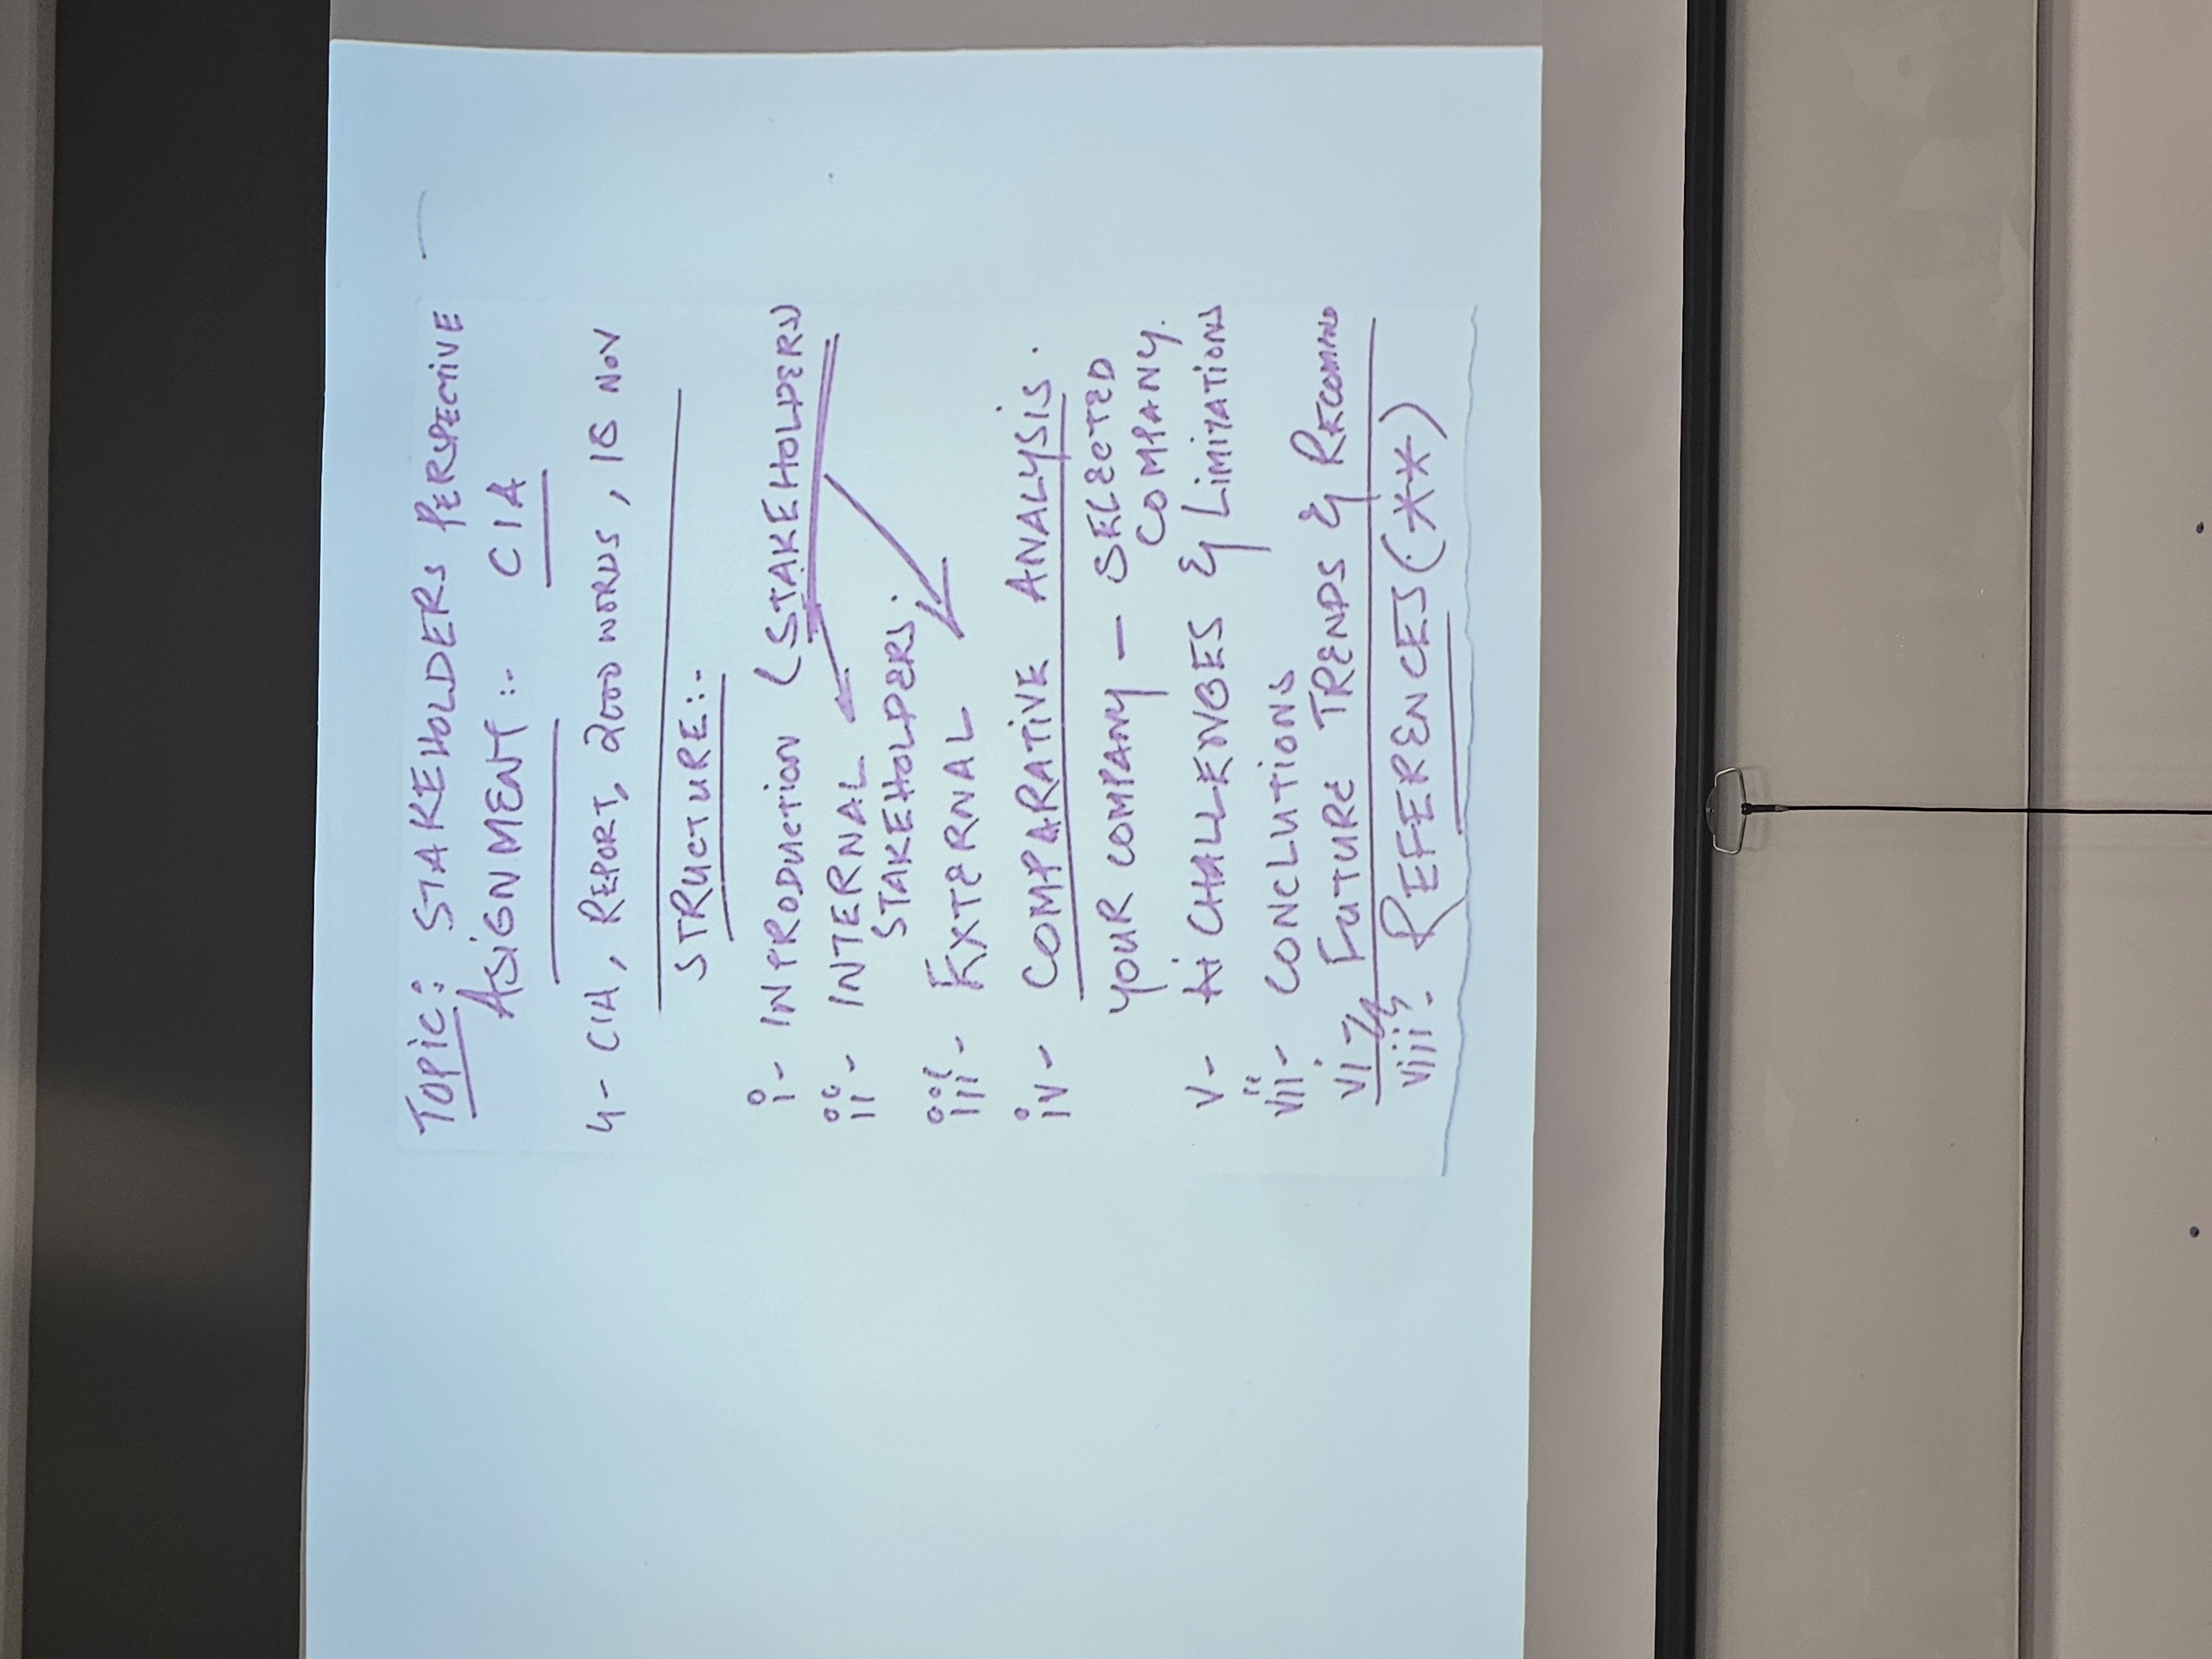 Topic: STAKEHOLDERS PERSPECTIVE
ASIGNMENT :- CIA
4- CIA, REPORT, 2000 WORDS, 18 NOV
STRUCTURE:-
i- INTRODUCTION (STAKEHOLDERS)
ii- INTERNAL
STAKEHOLDERS.
iii- EXTERNAL
iv- COMPARATIVE ANALYSIS.
YOUR COMPANY — SELECTED
COMPANY.
v- CHALLENGES & LIMITATIONS
vii- CONCLUTIONS
vi- FUTURE TRENDS & RECOMMND
viii- REFERENCES (**)